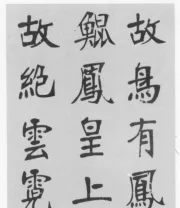 故鳥有鳳
鯤鳳皇上
故絕雲霓